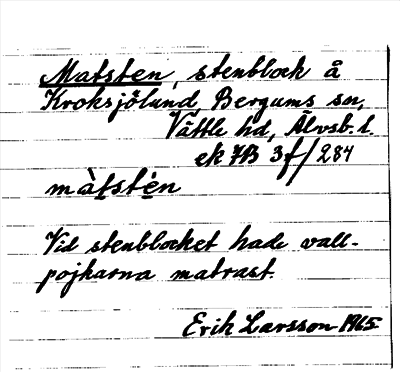 Matsten, stenblock å
Kroksjölund, Bergums sn,
Vättle hd, Älvsb. l.
ek 7B 3f/284
màtstén
Vid stenblocket hade vall-
pojkarna matrast.
Erik Larsson 1965